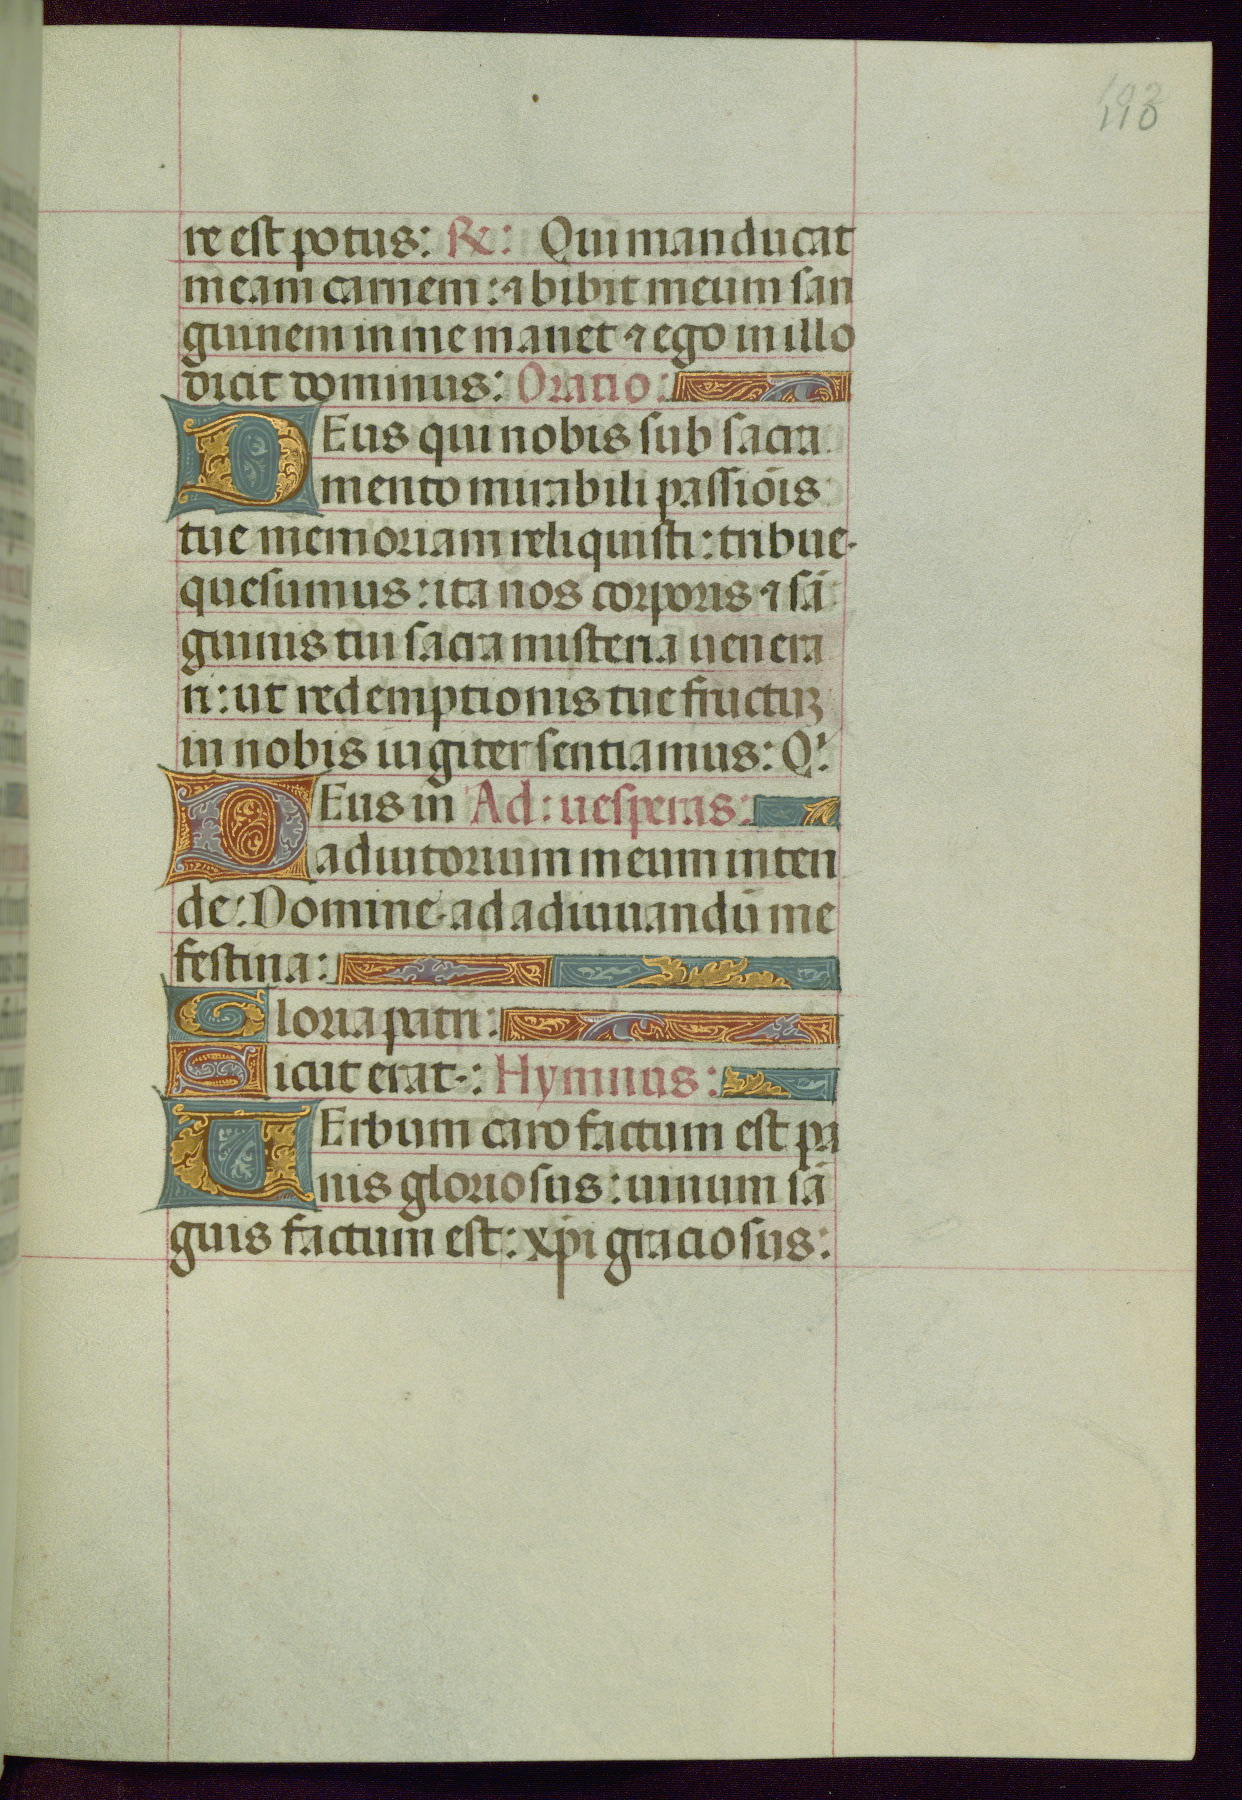 110
re est potus: ℟: Qui manducat
meam carnem: ⁊ bibit meum san
guinem in me manet ⁊ ego in illo
dicit dominus: Oratio:
DEus qui nobis sub sacra
mento mirabili passiōis
tue memoriam reliquisti: tribue·
quesumus: ita nos corporis ⁊ sā
guinis tui sacra misteria uenera
ri: ut redemptionis tue fructuꝫ
in nobis iugiter sentiamus: Qͥ:
DEus in Ad: uesperas:
adiutorium meum inten
de: Domine· ad adiuuandū me
festina:
Gloria patri:
Sicut erat·: Hymnus:
UErbum caro factum est pa
nis gloriosus: uinum sā
guis factum est: xp̄i graciosus: